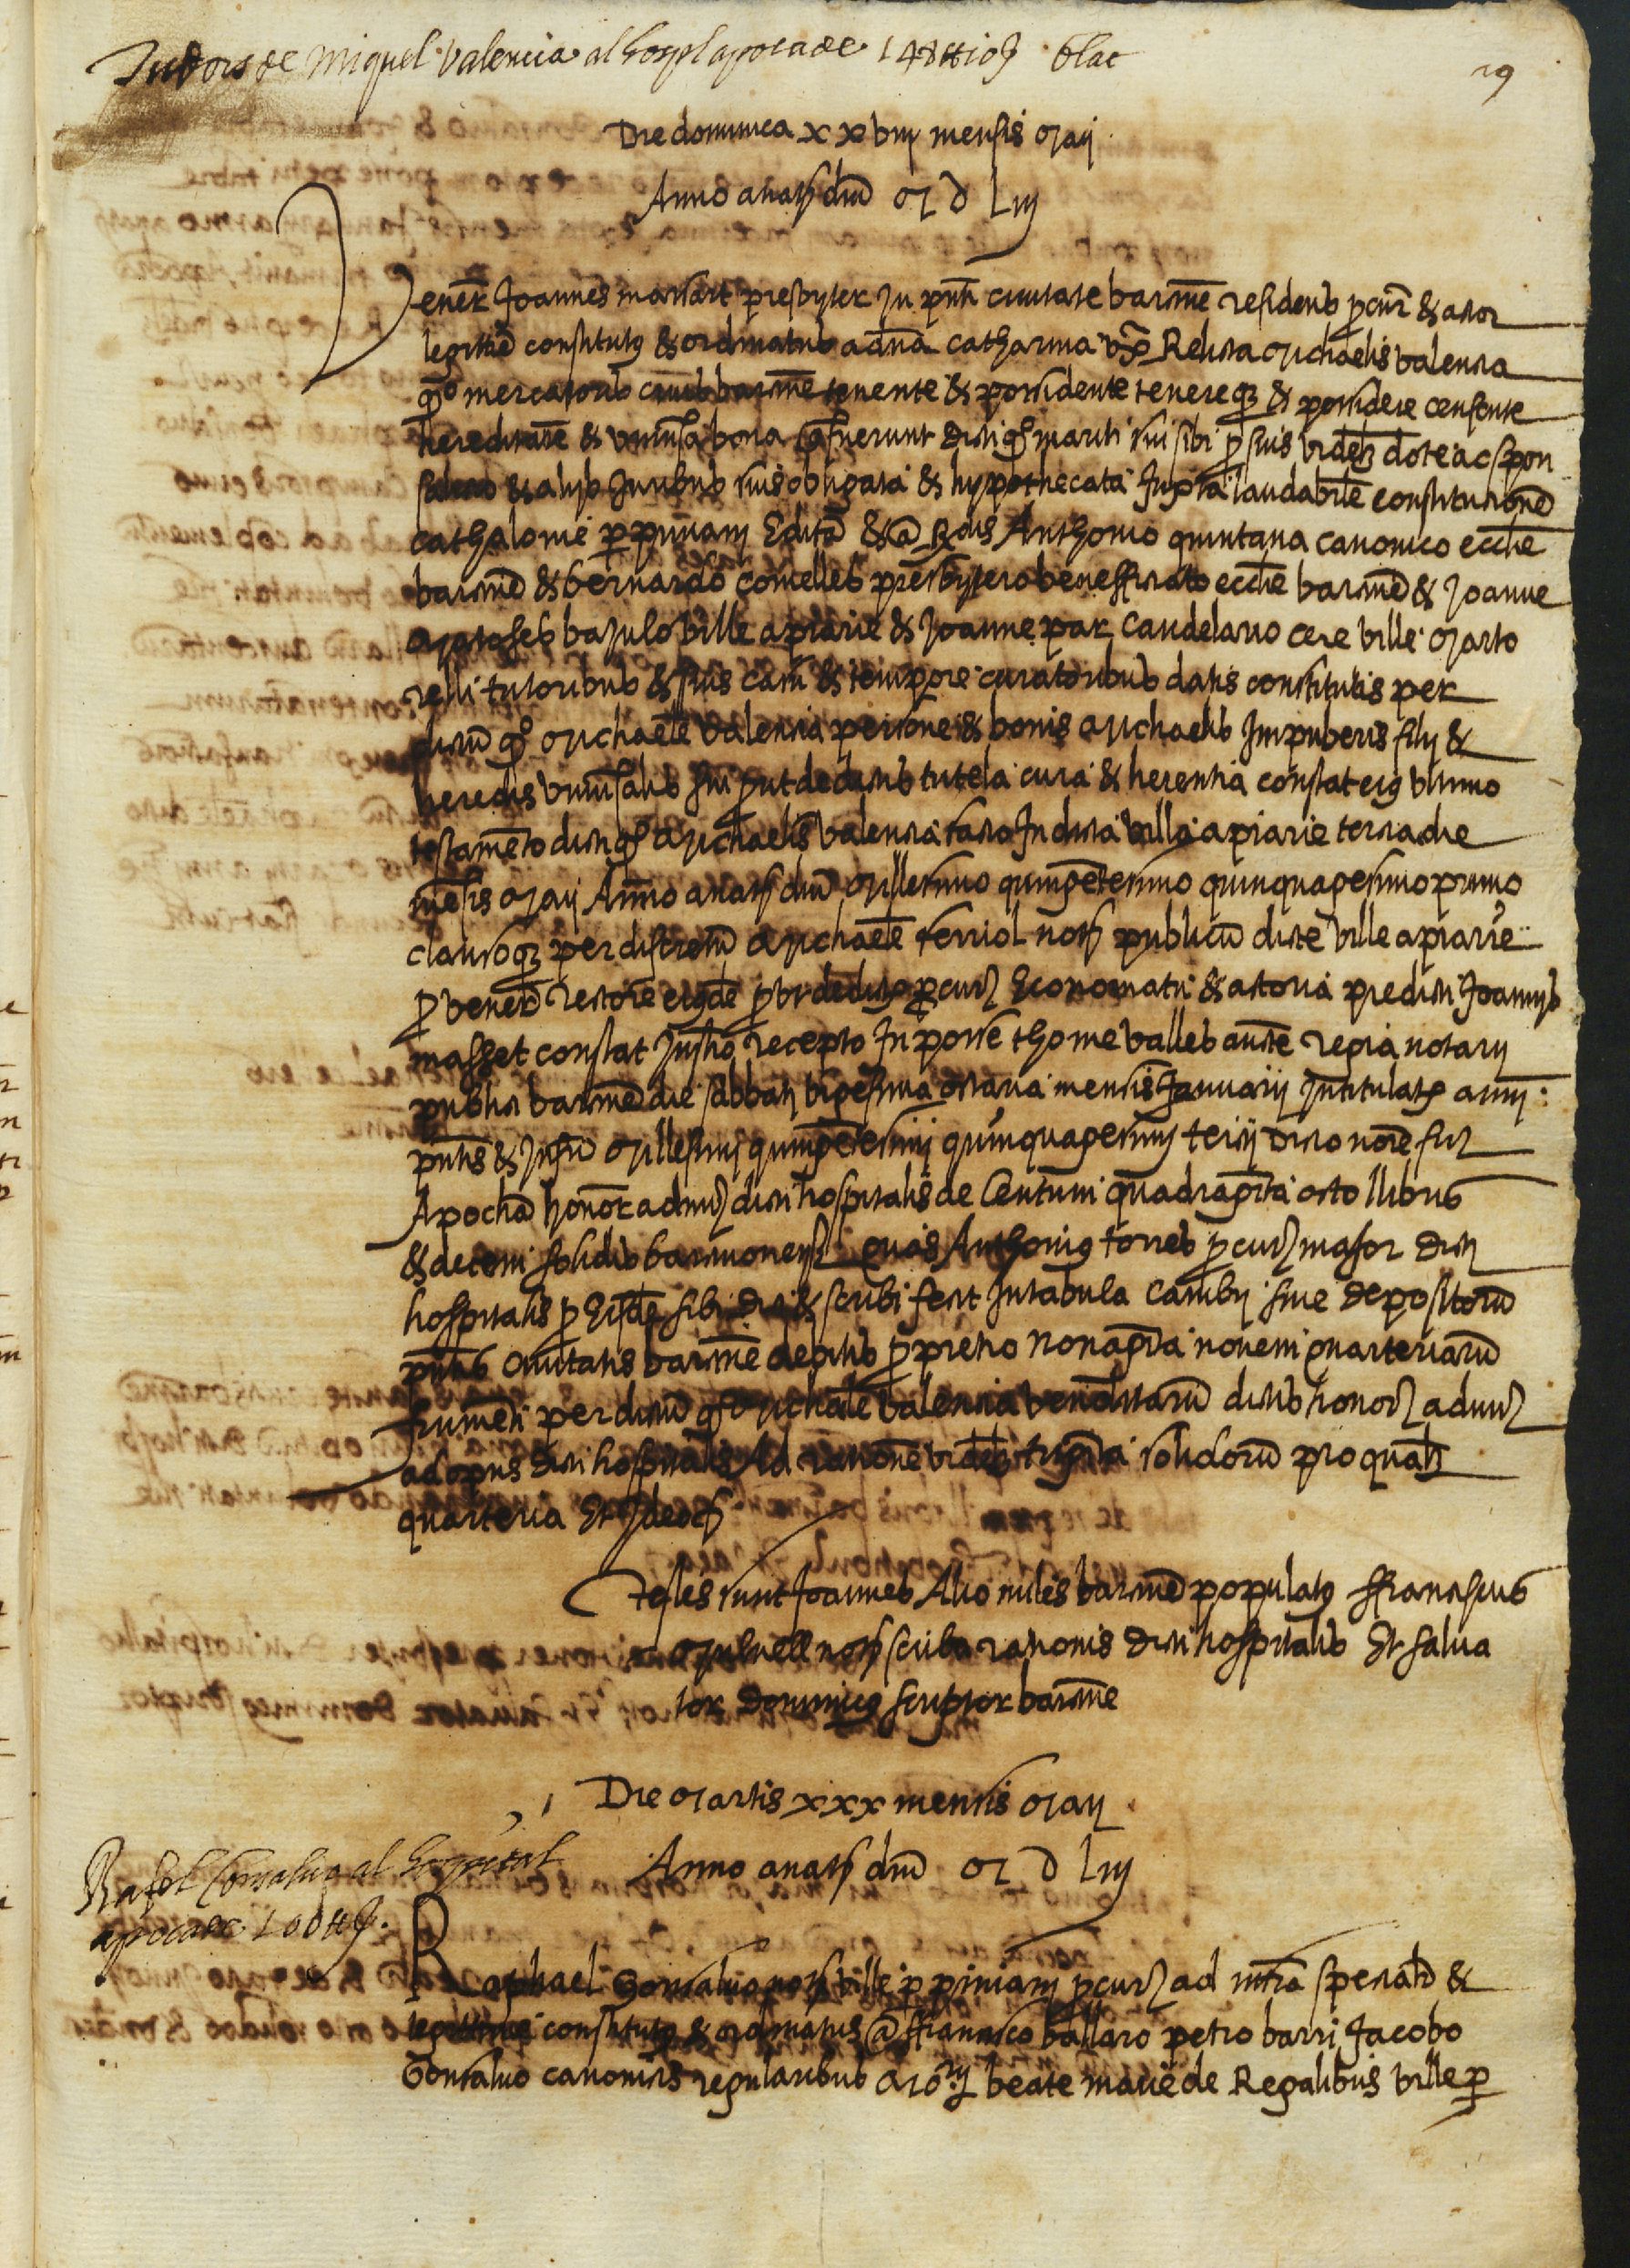 Tudors de Miquel Valencia al hospl apoca de 148 ℔ 10 ß blat
29
Die dominica xxviiij mensis Maij
Anno a natẽ dnĩ M D Liij
Venerͣ Joannes massart presbyter in pnti ciuitate barcinone residens pcur̃ & actor
legittime constitutus & ordinatus a dna Catharina uxͣ Relicta Michaelis Valencia
qº mercatoris ciuis barcinone tenente & possidente tenereqz & possidere censente
hereditatẽ & uniuersa bona q̃ fuerunt dicti qº mariti sui sibi p suis videlz dote ac spon
salitio & alijs Juribus suis obligata & hypothecata Juxta laudabilẽ constitutionẽ
cathalonie perpiniani Editã & a Rdis Anthonio quintana canonico ecclie
barcinoñ & bernardo comelles presbytero beneffitiato ecclie barcinoñ & Joanne
Matoses bajulo ville apiarie & Joanne par candelario cere ville Marto
relli tutoribus & suis casu & tempore curatoribus datis constitutis per
dictũ qº Michaelẽ Valencia persone & bonis Michaelis Impuberis filij &
heredis uniuersalis sui put de dictis tutela cura & herentia constat eius ultimo
testamẽto dicti qº Michaelis Valencia facto In dicta villa apiarie tercia die
mẽsis Maij Anno a natẽ dnĩ Millesimo quingẽtesimo quinquagesimo primo
clausoqz per discretũ Michaelẽ ferriol notm̃ publicũ dicte ville apiarie
p venerͣ rectorẽ eiusdẽ put de dictis pcur̃ Economatu & actoria predicti Joannis
masset constat Instrͦ recepto In posse thome Valles aucte regia notarij
publici barcinoñ die sabbati vigesima octaua mensis Januarij Intitulatͣ anni
pntis & Infrũ Millesimi quingẽtesimi quinquagesimi tercij Dicto noie fir̃
Apochã honor admir̃ dicti hospitalis de Centum quadragĩta octo llibris
& decem solidis barcinonensͤ quas Anthonius torres pcur̃ major dicti
hospitalis p Eisdẽ sibi dici & scribi fecit In tabula Cambij siue depositorũ
pntis Ciuitatis barcinoñ debitis p pretio nonagĩta nouem quarteriarũ
frumẽti per dictũ qº Michaelẽ Valencia venditarũ dictis honor̃ admir̃
ad opus dicti hospitalis Ad rationẽ videlz trigĩta solidorũ pro qualz
quarteria Et Ideo etc̃
Testes sunt Joannes Alio miles barcinoñ populatus ffranciscus
Mulnell notͤ scriba rationis dicti hospitalis Et salua
tor Dominicus scriptor barcinoñ
Die Martis xxx mensis Maij
Anno a natẽ dnĩ M D Liij
Rafel Consaluo al hospital
apoca de 100 ℔ ß.
Raphael Gonsaluo notͤ ville perpiniani pcur̃ ad infra speciatẽ &
legittime constitutus & ordinatus a ffrancisco ballaro petro barri Jacobo
Gonsaluo canonicis regularibus Mõrij beate marie de Regalibus ville per